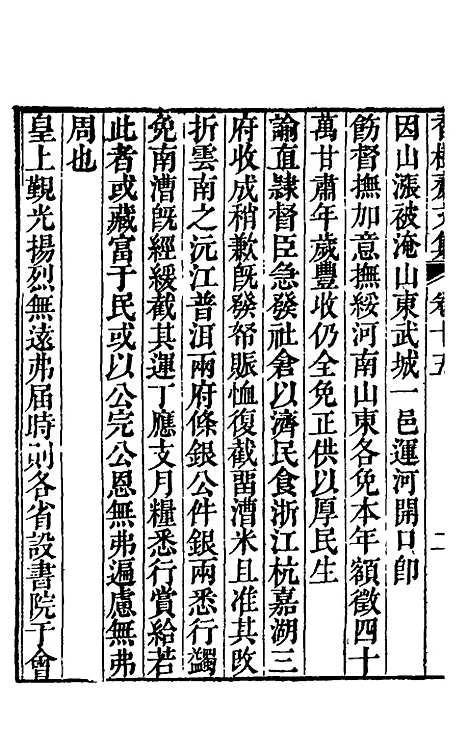 香樹齋文集 卷十五 二
因山漲被淹山東武城一邑運河開口卽
飭督撫加意撫綏河南山東各免本年額徵四十
萬甘肅年歲豐收仍全免正供以厚民生
諭直隸督臣急發社倉以濟民食浙江杭嘉湖三
府收成稍歉旣發帑賑恤復截畱漕米且准其改
折雲南之沅江普洱兩府條銀公件銀兩悉行蠲
免南漕旣經緩截其運丁應支月糧悉行賞給若
此者或藏富于民或以公完公恩無弗遍慮無弗
周也
皇上覲光揚烈無遠弗届時則各省設書院于會